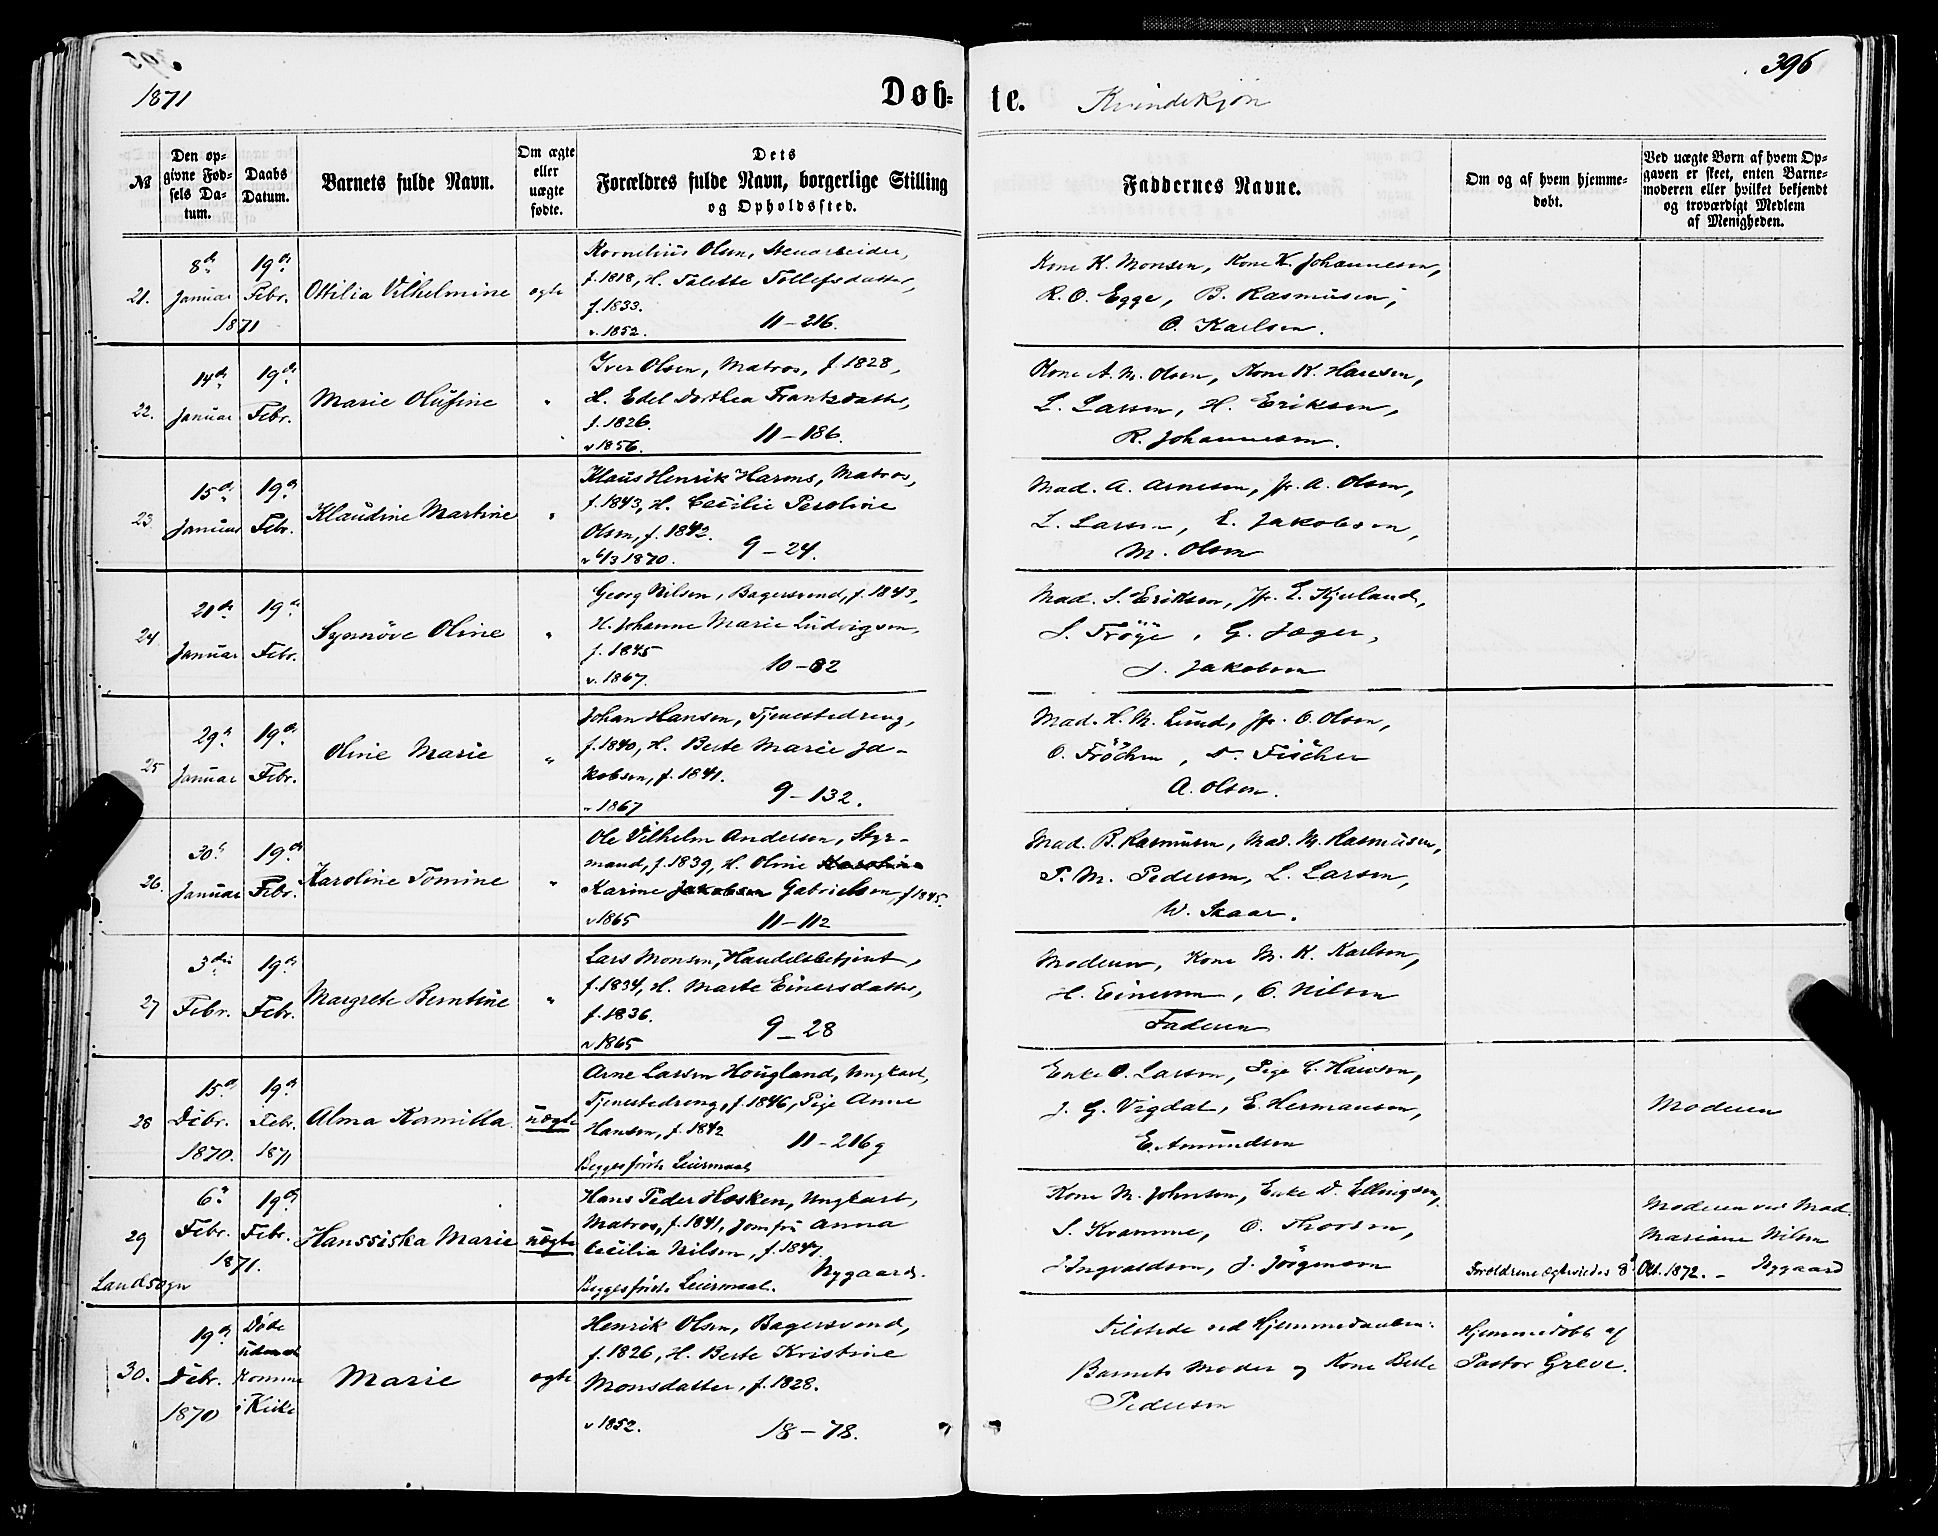 396
1871
Døb-
te.
Kvindekjøn
№
Den op-
givne Fød-
sels Da-
tum.
Daabs
Datum.
Barnets fulde Navn.
Om ægte
eller
uægte
fødte.
Dets
Forældres fulde Navn, borgerlige Stilling
og Opholdssted.
Faddernes Navne.
Om og af hvem hjemme-
døbt.
Ved uægte Børn af hvem Op-
gaven er skeet, enten Barne-
moderen eller hvilket bekjendt
og troværdigt Medlem
af Menigheden.
21.
8de
Januar
1871
19de
Febr.
Ottilia Vilhelmine
ægte
Kornelius Olsen, Stenarbeider,
f. 1818, H. Talette Tollefsdatter,
f. 1833.
v. 1852. 11-216.
Kone K. Monsen, Kone K. Johannesen,
R. O. Egge, B. Rasmusen,
O. Karlsen.
22.
14de
Januar
19de
Febr.
Marie Olufine
"
Iver Olsen, Matros, f. 1828,
H. Edel Dorthea Frantzdatter,
f. 1826.
v 1856. 11-186.
Kone A. M. Olsen, Kone K. Hansen,
L. Larsen, H. Eriksen,
R. Johannesen.
23.
15de
Januar
19de
Febr.
Klaudine Martine
"
Klaus Henrik Harms, Matros,
f. 1843, H. Cecilie Peroline
Olsen, f. 1842.
v 6/3 1870. 9-24.
Mad. A. Arnesen, Jfr. A. Olsen,
L. Larsen, E. Jakobsen,
M. Olsen
24
21de
Januar
19de
Febr.
Synnøve Oline
"
Georg Nilsen, Bagersvend, f. 1843,
H. Johanne Marie Ludvigsen,
f. 1845
v. 1867. 10-82
Mad. S. Eriksen, Jfr. E. Kjuland,
S. Trøye, G. Jæger,
J. Jakobsen
25
29de
Januar
19de
Febr.
Oline Marie
"
Johan Hansen, Tjenestedreng,
f. 1840, H. Berte Marie Ja-
kobsen, f. 1841.
v 1867 9-132.
Mad. H. M. Lund, Jfr. O. Olsen,
O. Frøchen, D. Fischer
A. Olsen.
26.
30te
Januar
19de
Febr.
Karoline Tomine
"
Ole Vilhelm Andersen, Styr-
mand, f. 1839, H. Oline Karoline
Karine Jakobsen Gabrielsen, f 1845.
v 1865 11-112
Mad. B. Rasmusen, Mad. M. Rasmusen,
P. M. Pedersen, L. Larsen,
W. Skaar.
27
3die
Febr.
19de
Febr.
Margrete Berntine
"
Lars Monsen, Handelsbetjent,
f. 1834, H. Marte Einersdatter,
f. 1836.
v 1865 9-28
Moderen, Kone M. K. Karlsen,
H. Einersen, O. Nilsen
Faderen
28
15de
Debr.
1870.
19de
Febr.
1871
Alma Kamilla
uægte
Arne Larsen Hougland, Ungkarl,
Tjenestedreng, f. 1846, Pige Anne
Hansen, f. 1842
11-216g
Begges første Leiermaal
Enke O. Larsen, Pige C. Hansen,
J. G. Vigdal, E. Hermansen,
E. Amundsen
Moderen
29
Landsogn
6te
Febr.
1871.
19de
Febr.
Hanssiska Marie
uægte
Hans Peder Hosken, Ungkarl,
Matros, f. 1841, Jomfru Anna
Cecilia Nilsen, f. 1847.
Nygaard.
Begges første Leiermaal.
Kone M. Johnsen, Enke D. Ellingsen,
S. Kramme, O. Thorsen,
J Ingvaldsen, J. Jørgensen
Forældrene ægteviedes 8de Okt. 1872. -
Moderen ved Mad.
Mariane Nilsen
Nygaard
30.
19de
Debr.
1870
Døde
uden at
komme
i Kirke
Marie
ægte
Henrik Olsen, Bagersvend,
f. 1826, H. Berte Kristine
Monsdatter, f. 1828.
v 1852. 18-78.
Tilstede ved Hjemmedaaben:
Barnets Moder og Kone Berte
Pedersen
Hjemmedøbt af
Pastor Greve.